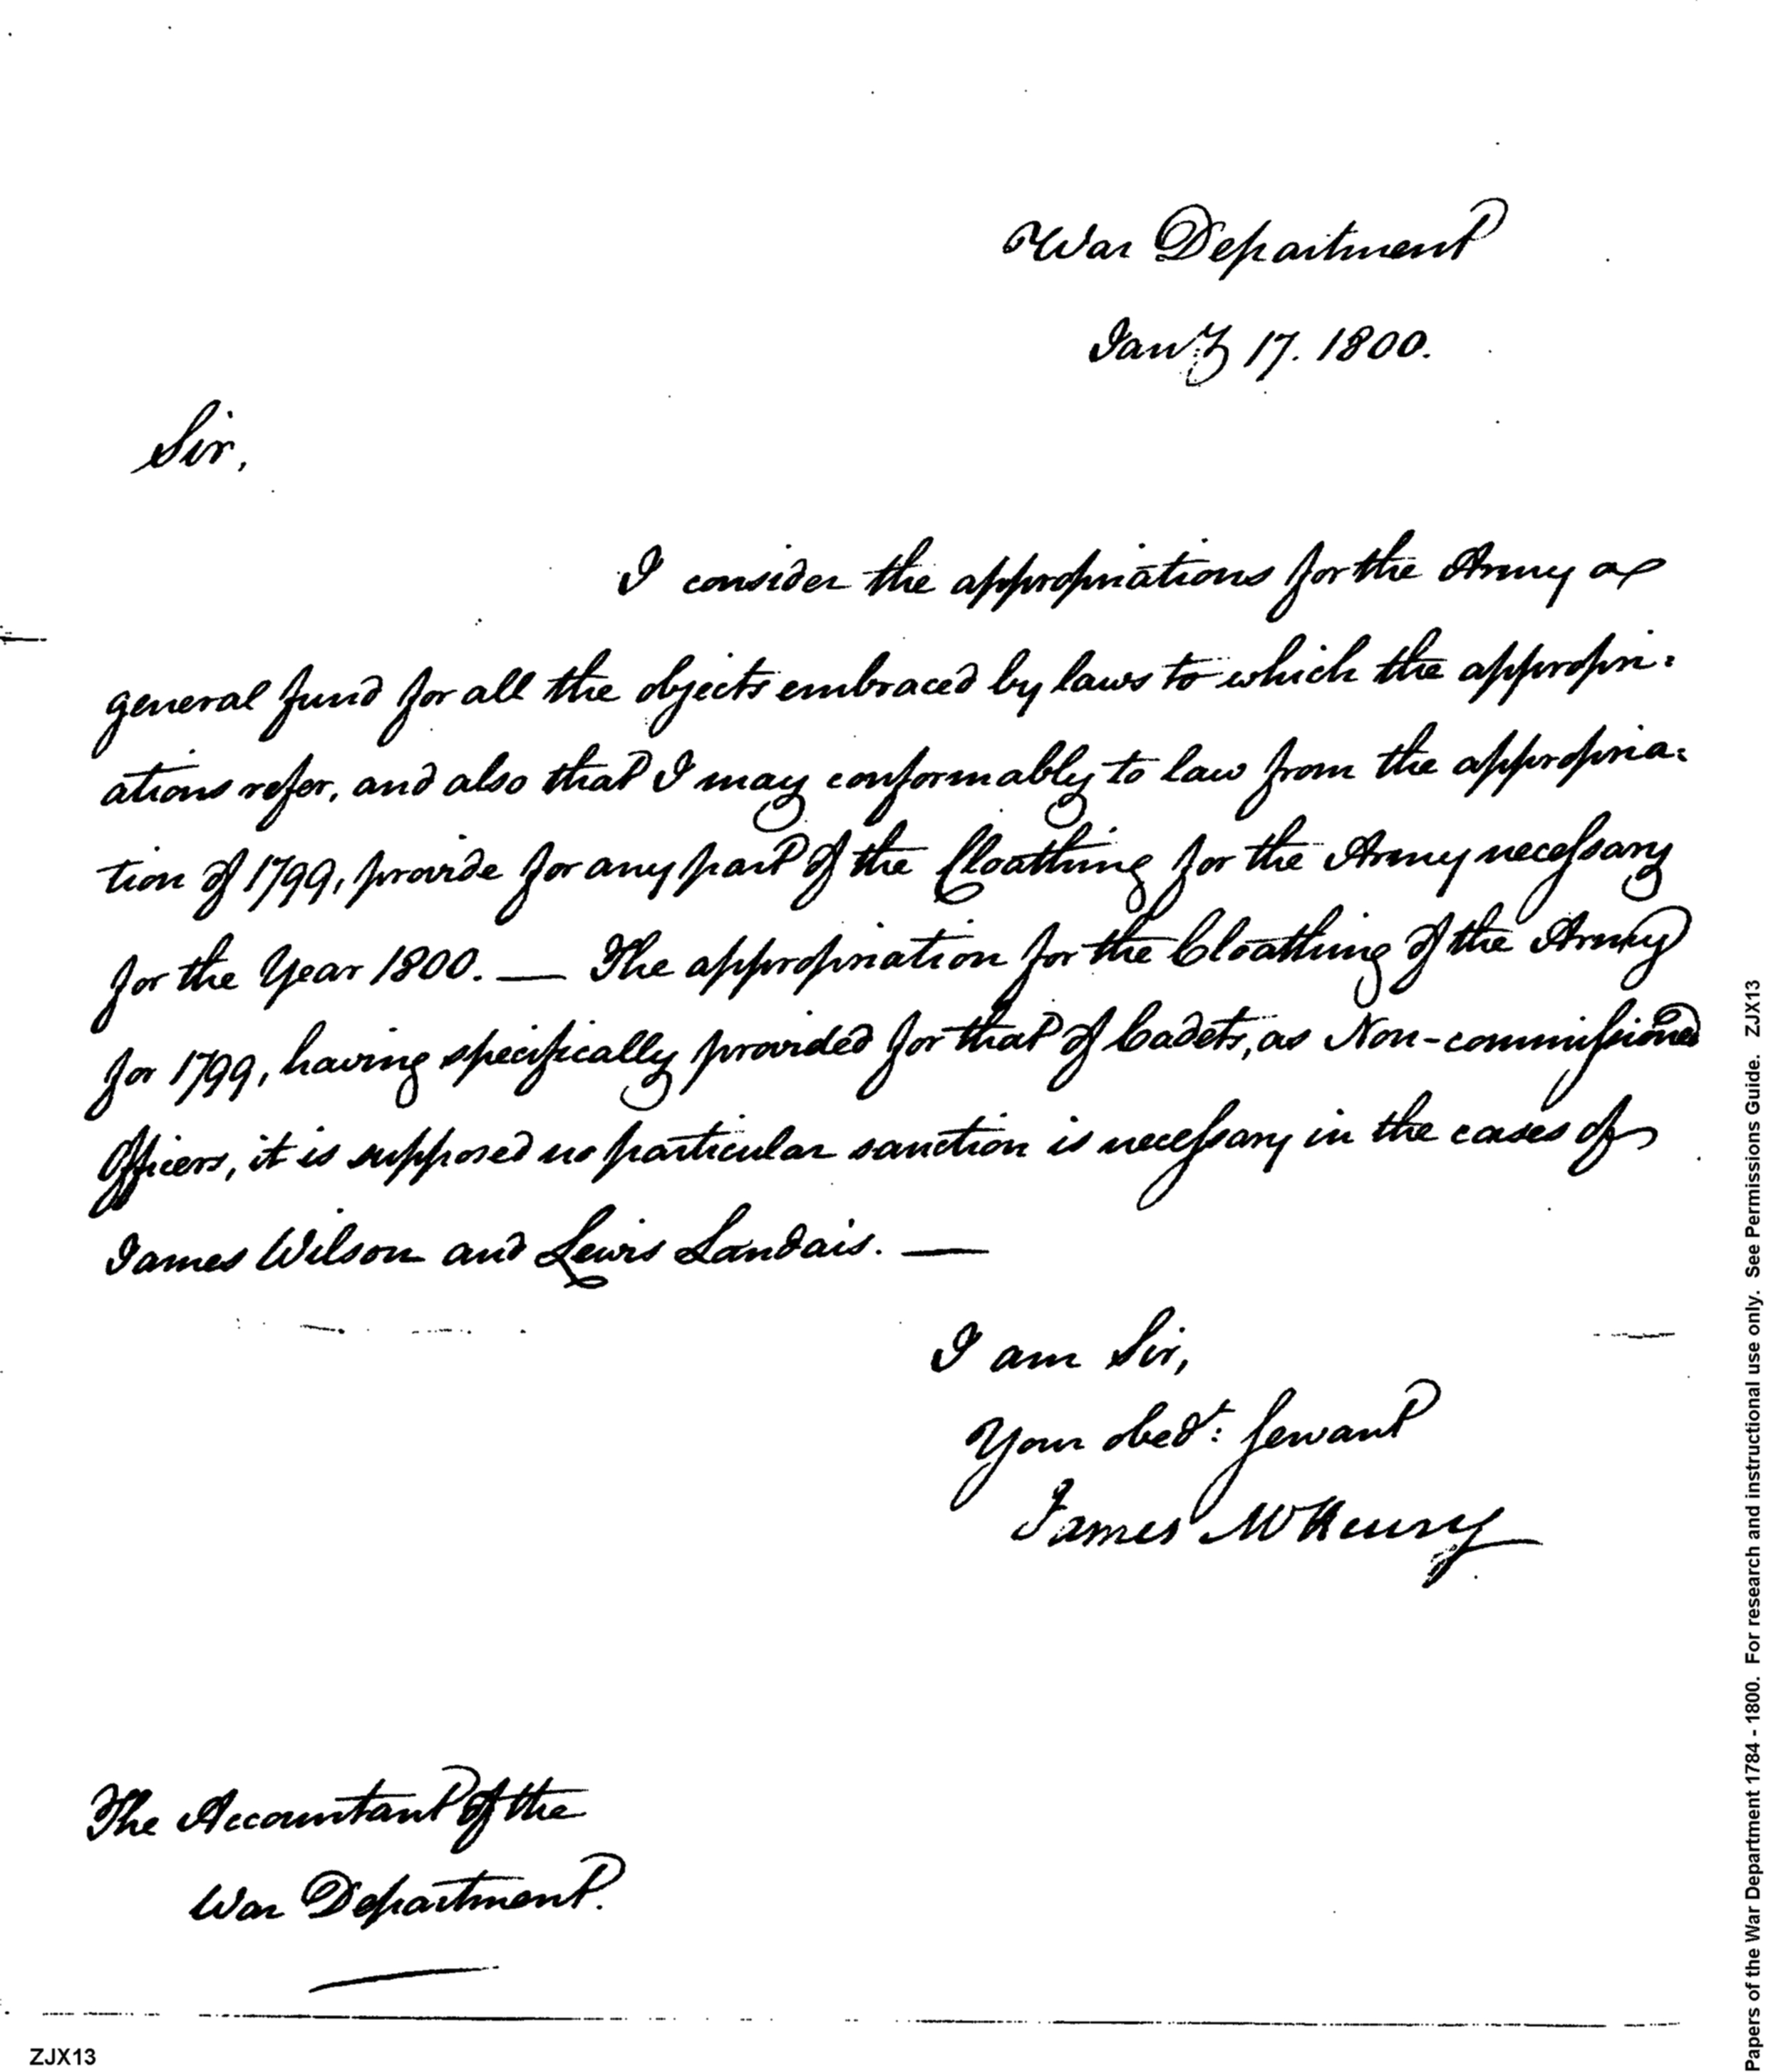 War Department
Jan.y 17. 1800.
Sir,
I consider the appropriations for the Army as
general fund for all the objects embraced by laws to which the appropri:
ations refer, and also that I may conformably to law from the appropria:
tion of 1799, provide for any part of the Cloathing for the Army necessary
for the Year 1800. — The appropriation for the Cloathing of the Army
for 1799, having specifically provided for that of Cadets, as Non-commissioned
Officers, it is supposed no particular sanction is necessary in the cases of
James Wilson and Lewis Landais. —
I am Sir,
Your obedt: Servant
James McHenry
The Accountant of the
War Department.
ZJX13
Papers of the War Department 1784 - 1800. For research and instructional use only. See Permissions Guide. ZJX13